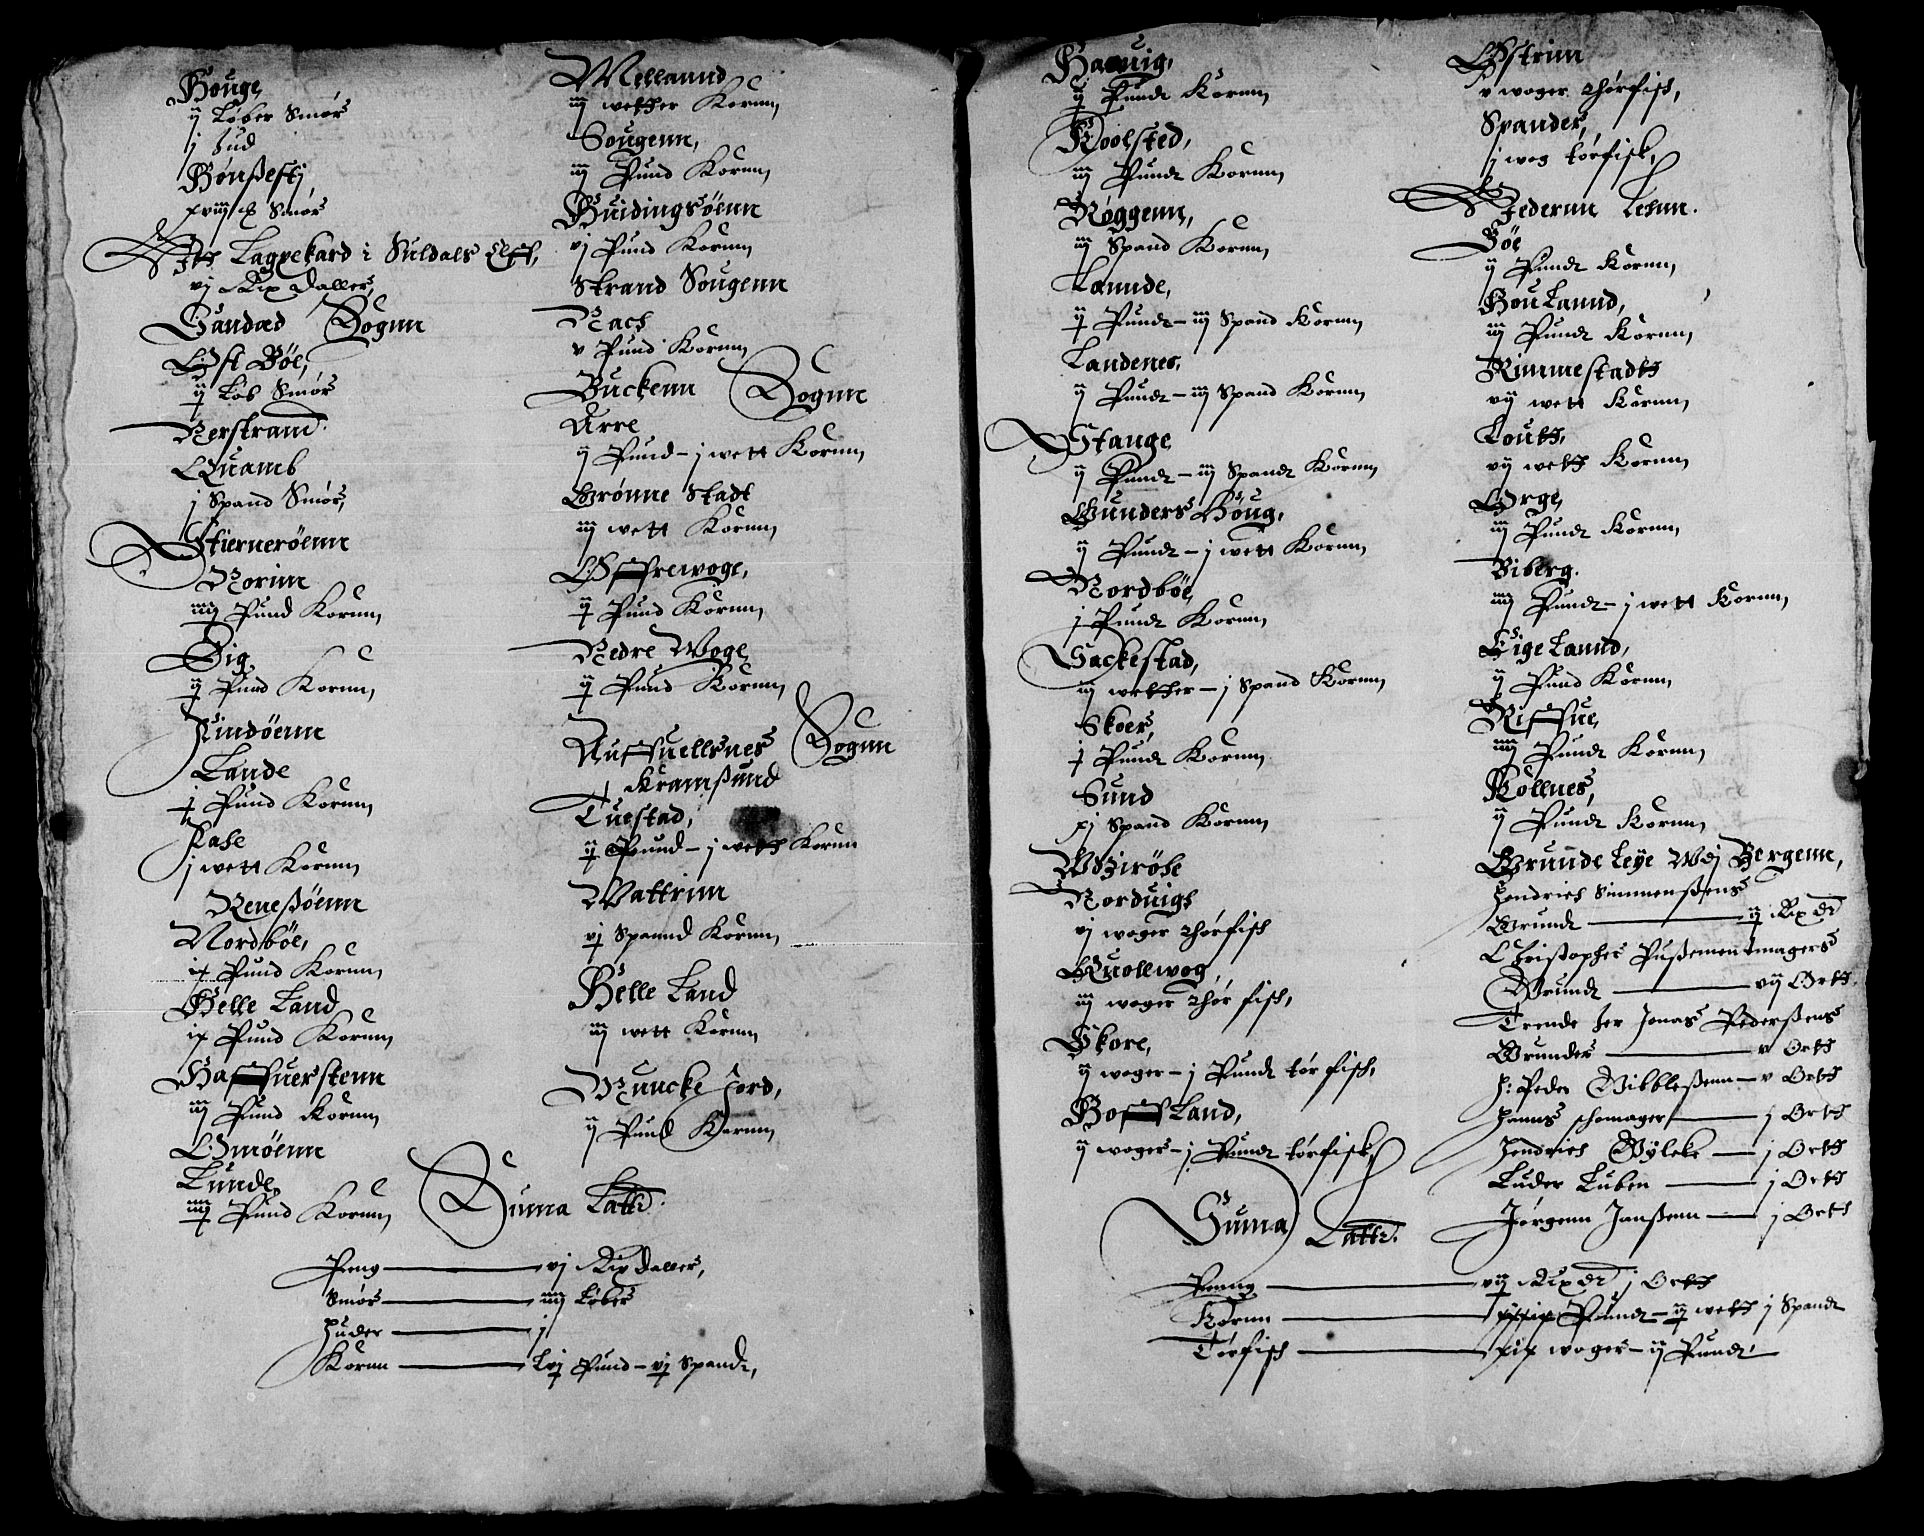 Houge
ij Løber Smør
j Hud
Hønßestj,
xviij Smør
Itt Laxekard i Suldals Elff,
vj Rix Daller,
Sandæd Sognn
Øst Bøe,
ij Løb Smør
Nerstrand.
Quamb
j Spand Smør,
Stiernerøenn
Norim
iiij Pund Kornn,
Dig
ij Pund Kornn,
Findøenn
Lande
j Pund Kornn,
Hase
j wett Kornn,
Reneßøenn
Nordbøe,
ix Pund Kornn,
Helle Land
ix Pund Kornn,
Haffuerstenn
iij Pund Kornn,
Omøenn
Lunde
iiij Pund Kornn,
Mellannd
iij wetther Kornn,
Sougenn,
iij Pund Kornn,
Huidingsøenn
vj Pund Kornn,
Strand Sougenn
Nach
v Pund Kornn,
Buckenn Sognn
Arre
ij Pund - j wett Kornn,
Grønne Stadt
iij wett Kornn,
Øffrewoge,
ij Pund Kornn,
Nedre Woge
ij Pund Kornn,
Auffuellsnes Sognn
Kramsund
Tuestad,
ij Pund - j wett Kornn
Wattrim
vj Spannd Kornn,
Helle Land
iij wett Kornn,
Muncke Jord,
ij Pund Kornn,
Suma Latt.
Peng vj Rix Daller,
Smør iiij Løber
Huder j
Kornn Lvj Pund - vj Spandt,
Hawig,
ij Pundt Kornn,
Roolsted,
iij Pundt Kornn,
Røggenn,
iij Spand Kornn,
Lannde,
ij Pundt - iij Spand Kornn,
Landenes,
ij Pundt - iij Spand Kornn,
Stange
ij Pundt - iij Spandt Kornn,
Gunders Houg,
ij Pundt - j wett Kornn,
Nordbøe,
j Pundt Kornn,
Sackestad,
iij wetther - j Spand Kornn,
Skoer,
j Pundt Kornn,
Sund
xj Spand Kornn,
Wdzirøse
Norduigh
vj woger thørfisch
Quollwog,
iij woger thør fisch,
Skore,
ij woger - j Pundt tør fisch,
Hoffland,
ij woger - j Pundt tørfisk
Suma Latt.
Penng vij Rix Dr j Ortt
Kornn Pundt - ij wett j Spandt
Tørfisch xix woger - ij Pundt
Østrim
v woger thørfisch,
Spander,
j wog tørfisk,
Jedernn Lehnn.
Bøe
ij Pundt Kornn,
Hou Lannd,
iij Pundt Kornn,
Rimmestadtt
vij wett Kornn,
Loutt,
vij wett Kornn,
Orge,
iij Pundt Kornn,
Biberg.
iiij Pundt - j wett Kornn,
Eige Lannd,
ij Pund Kornn,
Riffue,
iiij Pundt Kornn,
Kollnes,
ij Pundt Kornn,
Grunde Leye Wdj Bergenn,
Hendrich Simmenßens
Grundt ij Rix Dr
Christopher Pußementmagers
Grundt vij Ortt.
Trende her Jonas Pederßens
Grunder v Ortt
H: Peder Nibbleßenn v Ortt
Hanns schomager j Ortt
Hendrich Wyleke j Ortt
Luder Luben j Ortt
Jørgenn Janßenn j Ortt